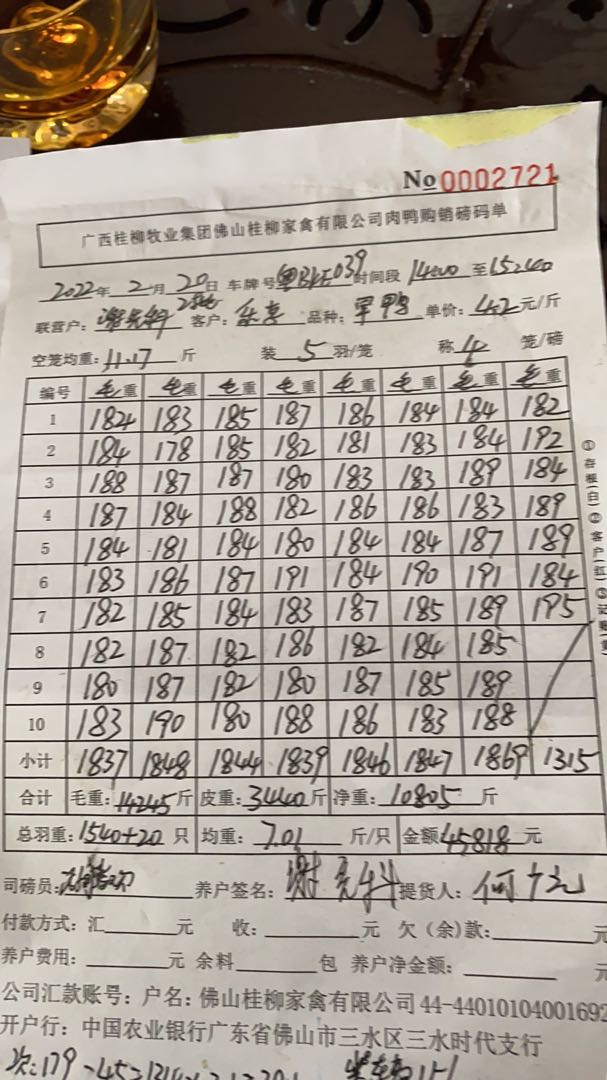 No 0002721
广西桂柳牧业集团佛山桂柳家禽有限公司肉鸭购销磅码单
2022年 2月 20日 车牌号 039 时间段 至
联营户: 客户: 品种: 鸭 单价: 元/斤
空笼均重: 11.17 斤 装 5 羽/笼 称 4 笼/磅
编号 毛重 毛重 毛重 毛重 毛重 毛重 毛重 毛重
1 182 183 185 187 186 184 184 182
2 184 178 185 182 181 183 184 192
3 188 187 187 180 183 183 189 184
4 187 184 188 182 186 186 183 189
5 184 181 184 180 184 184 187 189
6 183 186 187 191 184 190 191 184
7 182 185 184 183 187 185 189 195
8 182 187 182 186 182 184 185
9 180 187 182 180 187 185 189
10 183 190 180 188 186 183 188
小计 1837 1848 1844 1839 1846 1847 1869 1315
合计 毛重: 14245 斤 皮重: 3440 斤 净重: 10805 斤
总羽重: 1540+20 只 均重: 7.01 斤/只 金额 45818 元
司磅员: 养户签名: 谢 提货人: 何
付款方式: 汇 元 收: 元 欠(余)款: 元
养户费用: 元 余料 包 养户净金额: 元
公司汇款账号: 户名: 佛山桂柳家禽有限公司 44-44010104001692
开户行: 中国农业银行广东省佛山市三水区三水时代支行
①存根(白)②客户(红)③记账(黄)